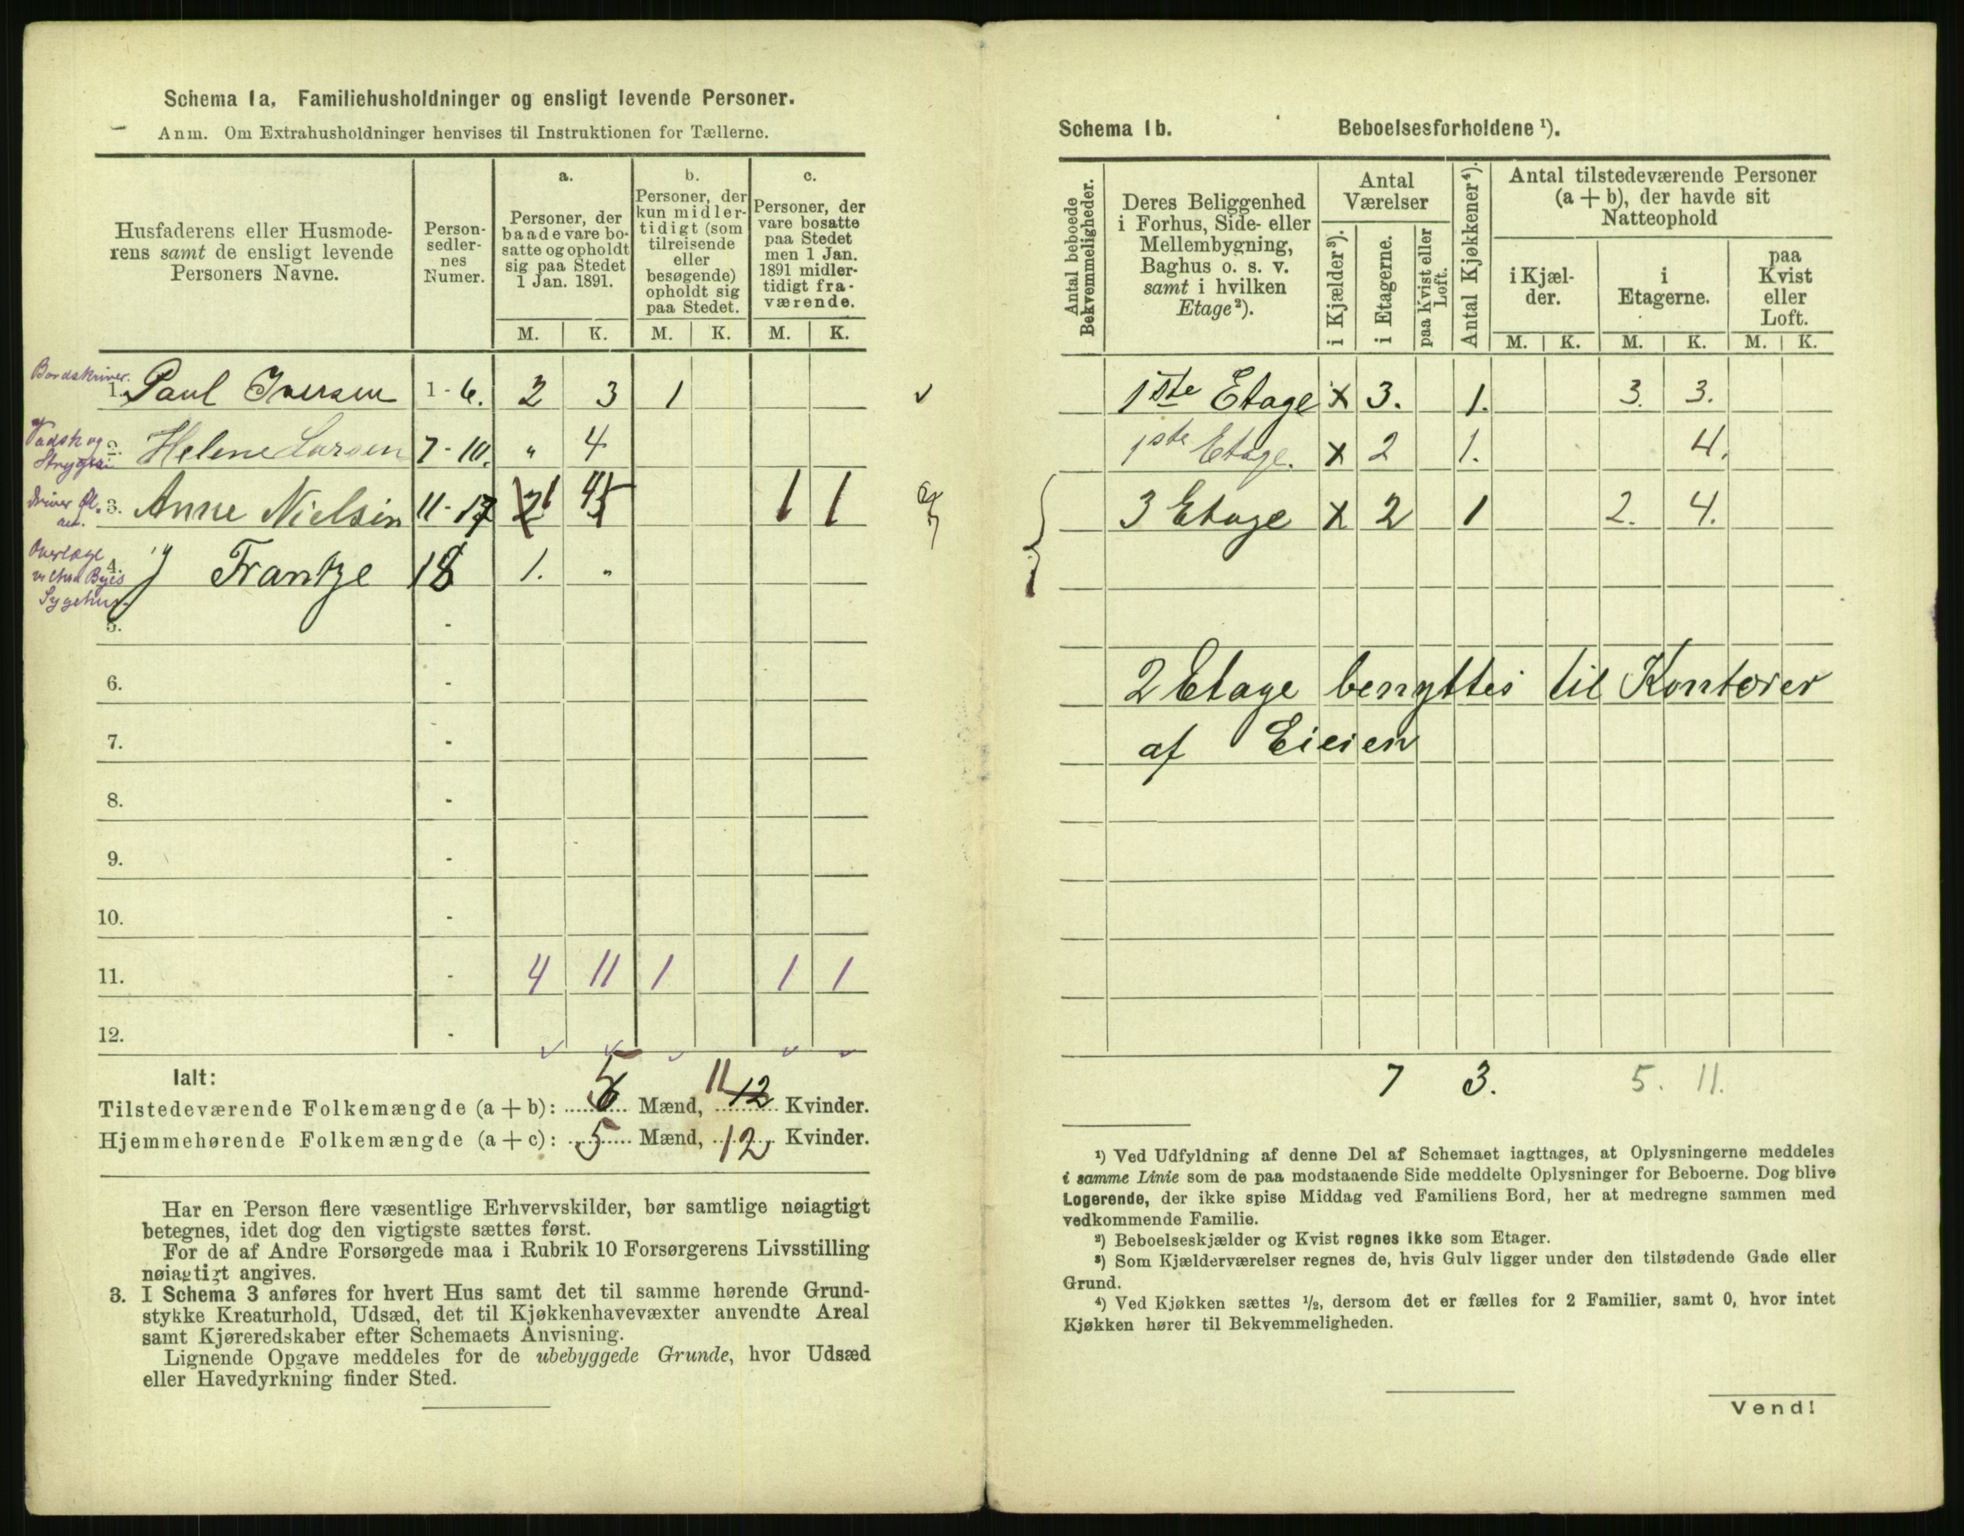 Schema 1a. Familiehusholdninger og ensligt levende Personer.
Anm. Om Extrahusholdninger henvises til Instruktionen for Tællerne.
Husfaderens eller Husmoderens samt de ensligt levende Personers Navne.
Person-sedler-nes Numer.
a. Personer, der baade vare bosatte og opholdt sig paa Stedet 1 Jan. 1891.
b. Personer, der kun midlertidigt (som tilreisende eller besøgende) opholdt sig paa Stedet.
c. Personer, der vare bosatte paa Stedet men 1 Jan. 1891 midlertidigt fraværende.
M. K. M. K. M. K.
Bordskriver.
1. Paul Iversen 1-6. 2 3 1
Vadsk og Strygeri
2. Helene Larsen 7-10. " 4
driver
3. Anne Nielsen 11-17 2 1 4 5 1 1
Overlæge
Byes Sygehus
4. J Frantze 18 1. "
5. -
6. -
7. -
8. -
9. -
10. -
11. - 4 11 1 1 1
12. -
Ialt:
Tilstedeværende Folkemængde (a + b): 6 5 Mænd, 11 12 Kvinder.
Hjemmehørende Folkemængde (a + c): 5 Mænd, 12 Kvinder.
Har en Person flere væsentlige Erhvervskilder, bør samtlige nøiagtigt
betegnes, idet dog den vigtigste sættes først.
For de af Andre Forsørgede maa i Rubrik 10 Forsørgerens Livsstilling
nøiagtigt angives.
3. I Schema 3 anføres for hvert Hus samt det til samme hørende Grund-
stykke Kreaturhold, Udsæd, det til Kjøkkenhavevæxter anvendte Areal
samt Kjøreredskaber efter Schemaets Anvisning.
Lignende Opgave meddeles for de ubebyggede Grunde, hvor Udsæd
eller Havedyrkning finder Sted.
Schema 1b. Beboelsesforholdene ¹).
Antal beboede Bekvemmeligheder.
Deres Beliggenhed i Forhus, Side- eller Mellembygning, Baghus o. s. v. samt i hvilken Etage ²).
Antal Værelser
i Kjælder ³).
i Etagerne.
paa Kvist eller Loft.
Antal Kjøkkener ⁴).
Antal tilstedeværende Personer (a + b), der havde sit Natteophold
i Kjælder.
i Etagerne.
paa Kvist eller Loft.
M. K. M. K. M. K.
1ste Etage x 3. 1. 3. 3.
1ste Etage. x 2 1. 4.
3 Etage x 2 1 2. 4.
2 Etage benyttes til Kontorer
af Eieren
7 3. 5. 11.
¹) Ved Udfyldning af denne Del af Schemaet iagttages, at Oplysningerne meddeles
i samme Linie som de paa modstaaende Side meddelte Oplysninger for Beboerne. Dog blive
Logerende, der ikke spise Middag ved Familiens Bord, her at medregne sammen med
vedkommende Familie.
²) Beboelseskjælder og Kvist regnes ikke som Etager.
³) Som Kjælderværelser regnes de, hvis Gulv ligger under den tilstødende Gade eller
Grund.
⁴) Ved Kjøkken sættes ½, dersom det er fælles for 2 Familier, samt 0, hvor intet
Kjøkken hører til Bekvemmeligheden.
Vend!